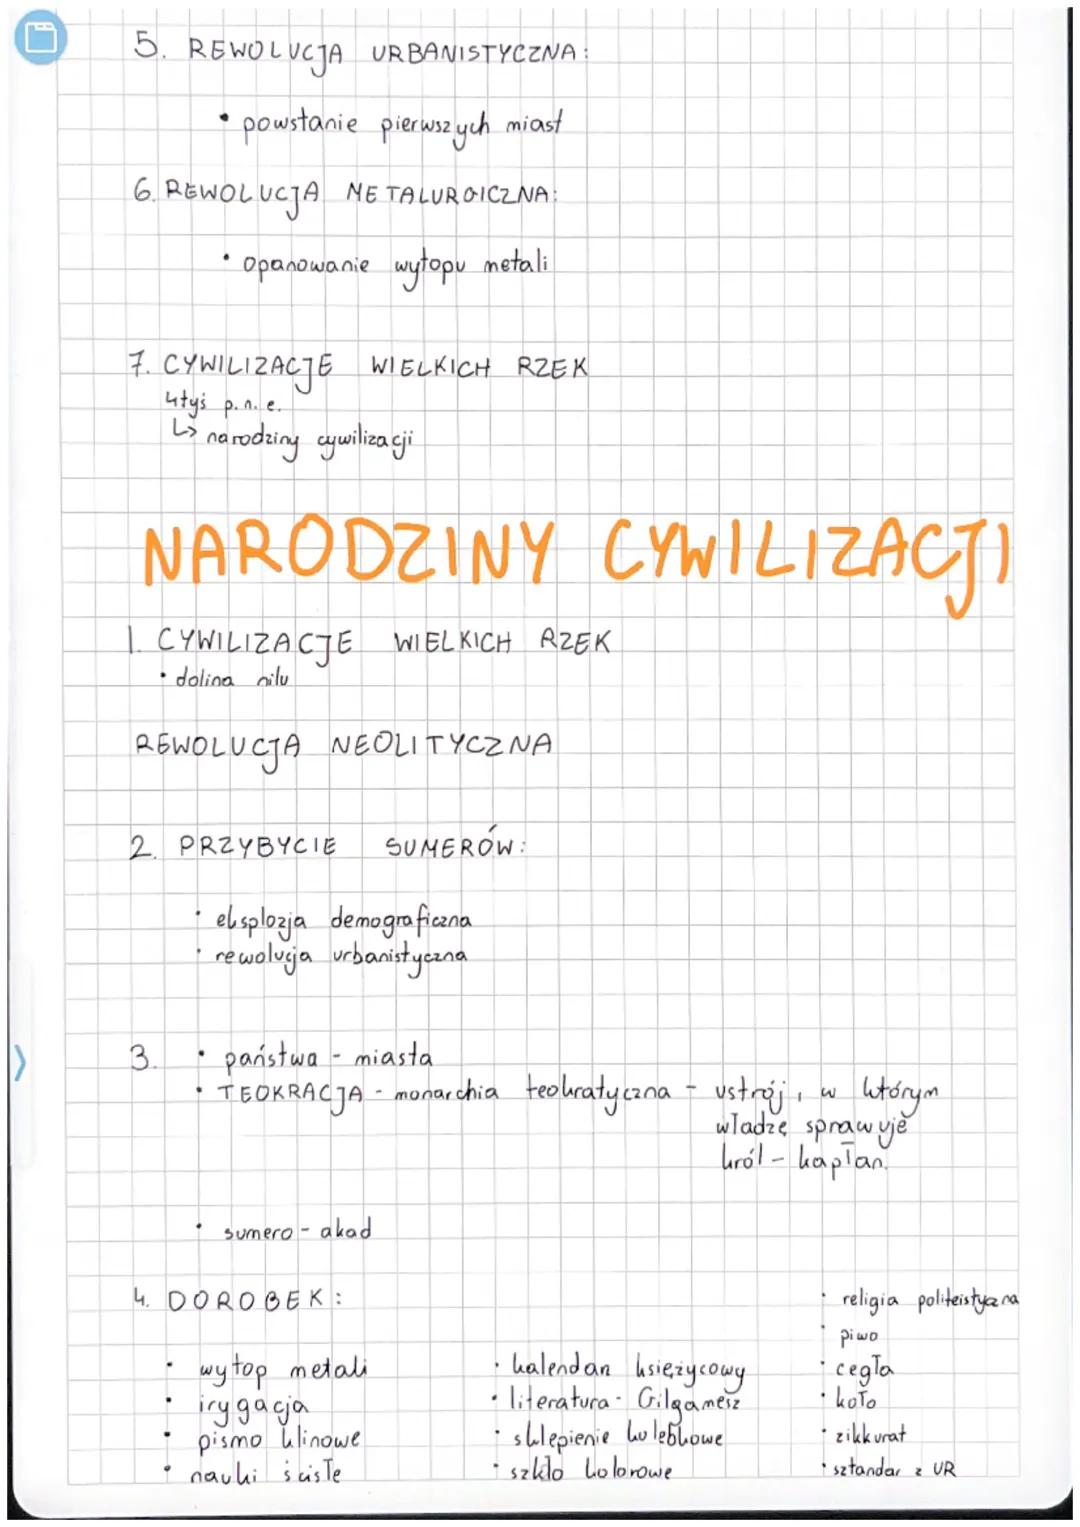 5. REWOLUCJA URBANISTYCZNA:
• powstanie pierwszych miast
6. REWOLUCJA METALURGICZNA:
• opanowanie wytopu metali
7. CYWILIZACJE WIELKICH RZEK
4tyś p.n.e.
↳ narodziny cywilizacji
NARODZINY CYWILIZACJI
1. CYWILIZACJE WIELKICH RZEK
• dolina nilu
REWOLUCJA NEOLITYCZNA
2. PRZYBYCIE SUMERÓW:
• eksplozja demograficzna
• rewolucja urbanistyczna
3. • państwa - miasta
• TEOKRACJA - monarchia teokratyczna - ustrój, w którym
władzę sprawuje
król - kapłan.
• sumero - akad
4. DOROBEK:
• wytop metali
• irygacja
• pismo klinowe
• nauki ścisłe
• kalendan księżycowy
• literatura - Gilgamesz
• sklepienie kolebkowe
• szkło kolorowe
• religia politeistyczna
• piwo
• cegła
• koło
• zikkurat
• sztandar z UR